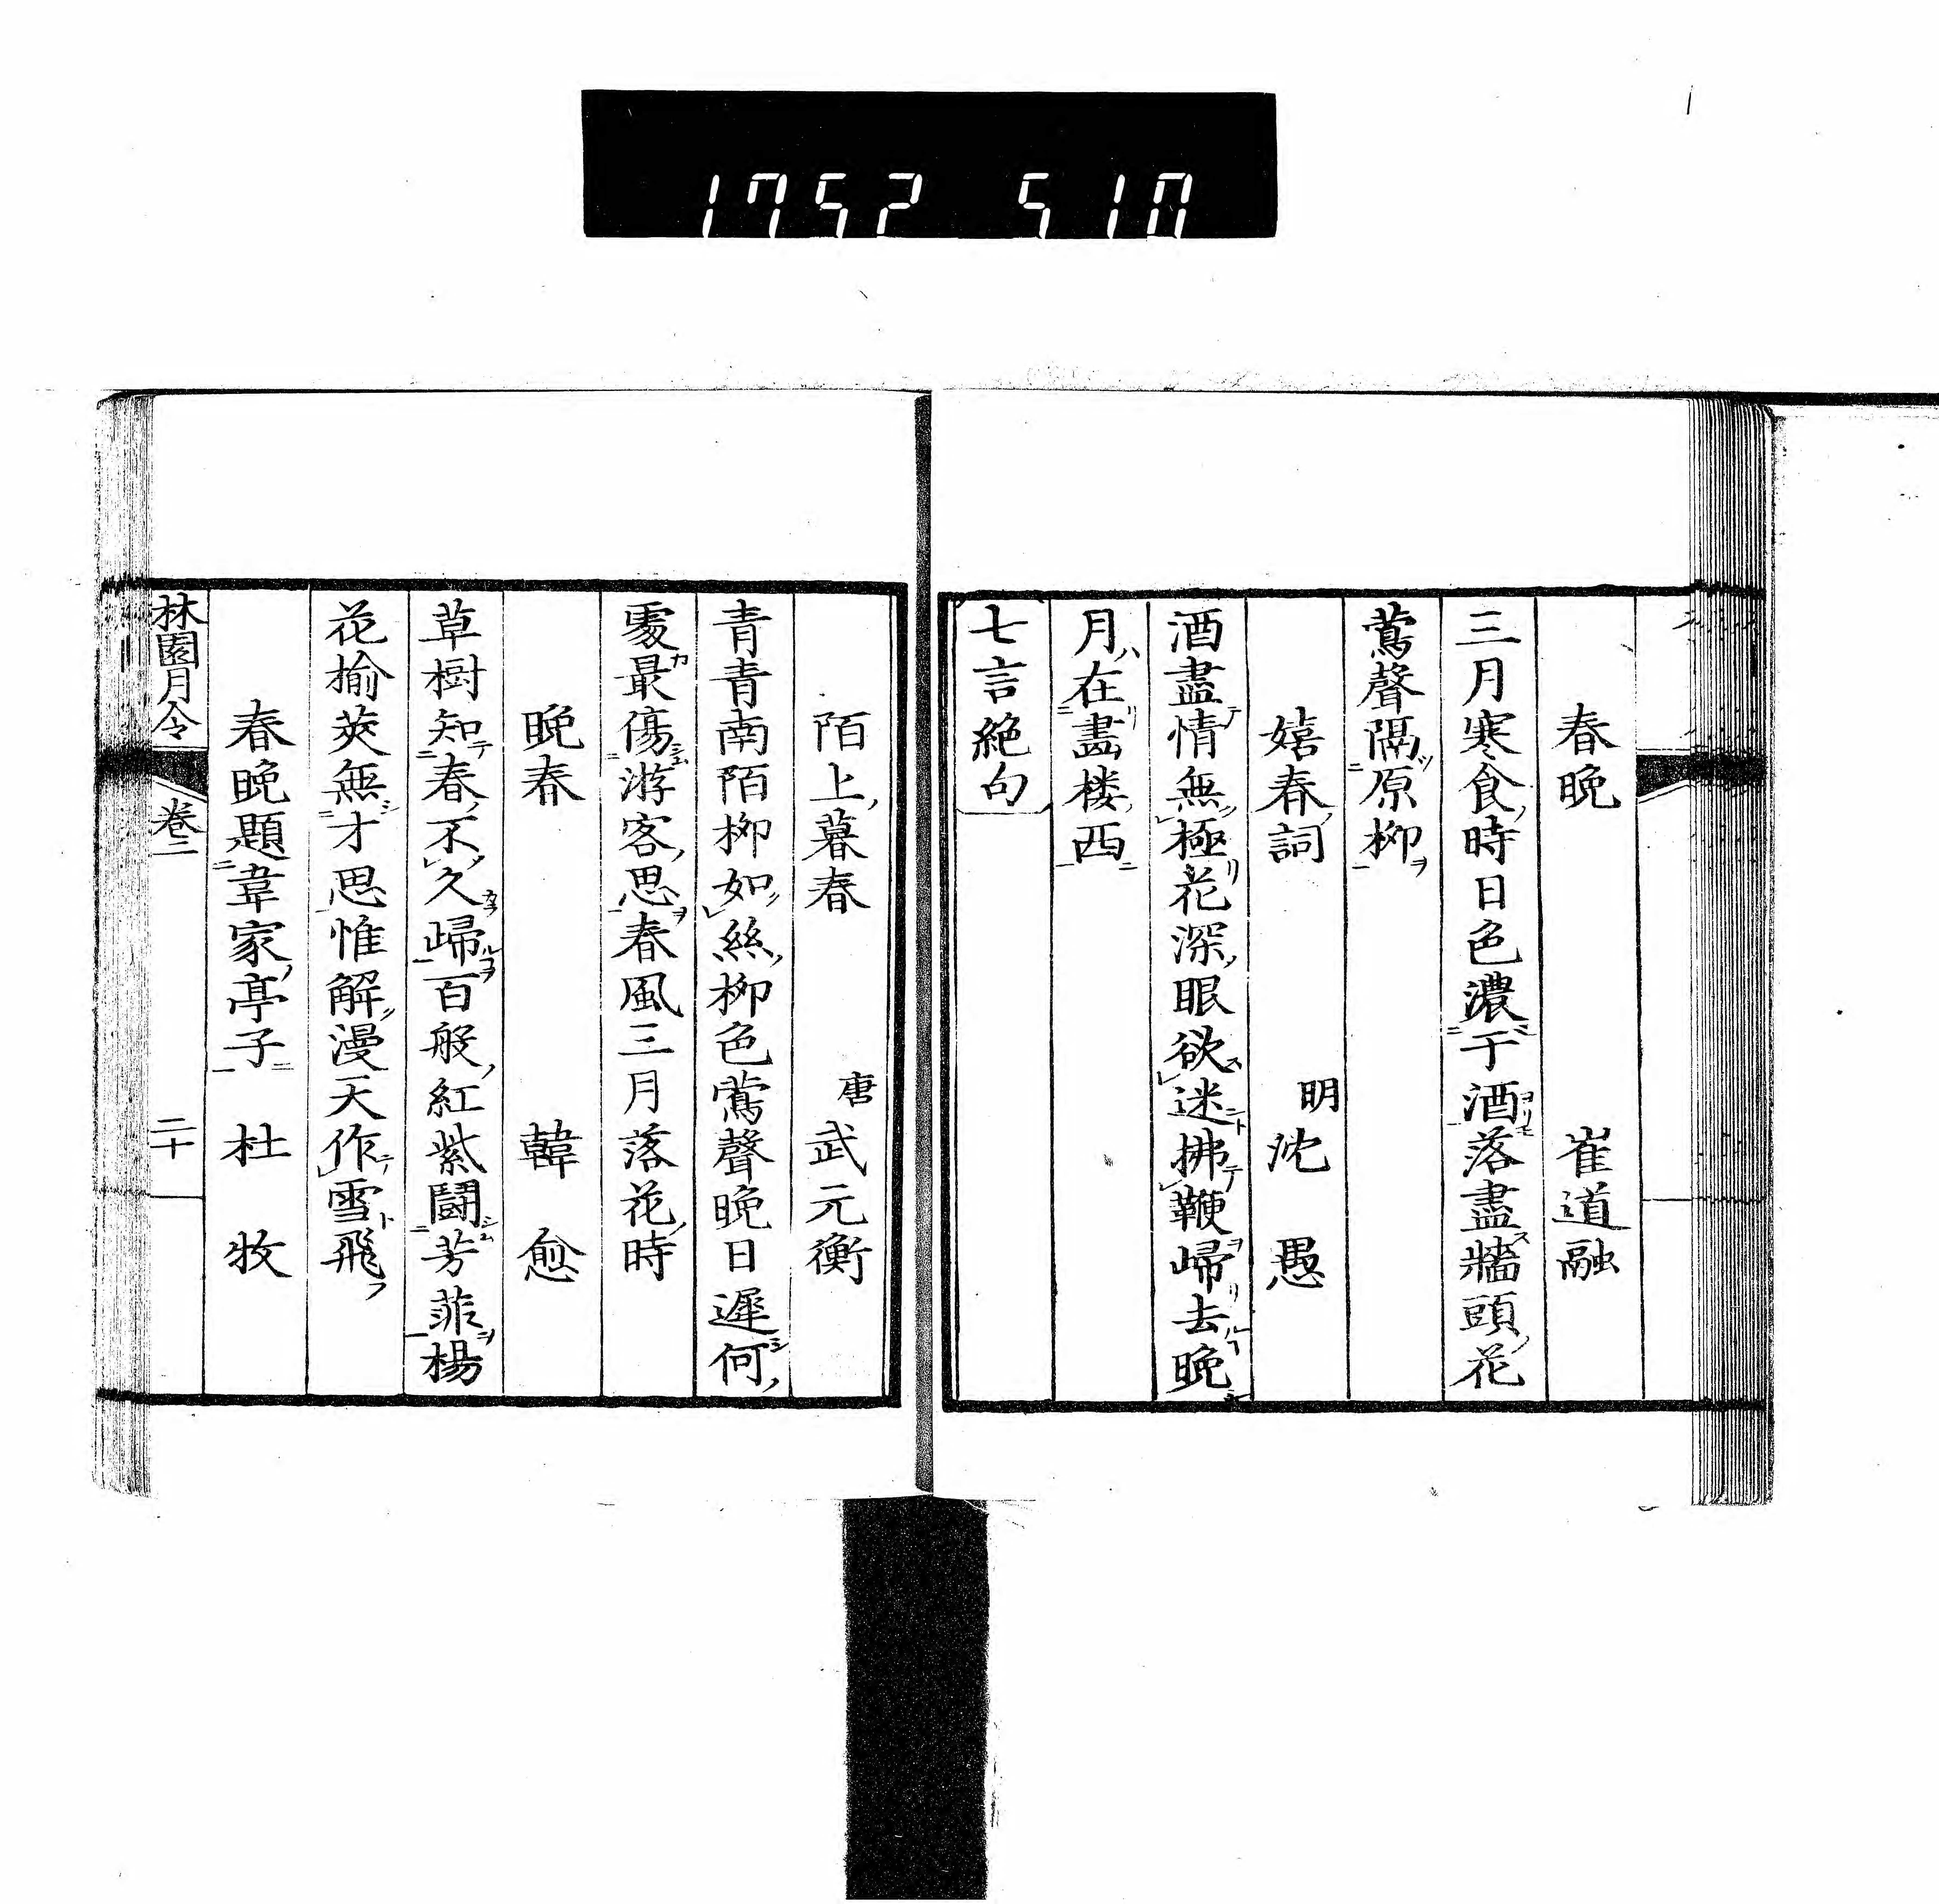 1752 510
春晩 崔道融
三月寒食時日色濃于酒落盡牆頭花
鶯聲隔原栁
嬉春詞 明 沈愚
酒盡情無極花深眼欲迷拂鞭歸去晩
月在畵楼西
七言絶句
陌上暮春 唐 武元衡
青青南陌栁如絲栁色鶯聲晩日遲何
處最傷游客思春風三月落花時
晩春 韓愈
草樹知春不久歸百般紅紫鬪芳菲楊
花榆莢無才思惟解漫天作雪飛
春晩題韋家亭子 杜牧
林園月令 卷二 二十